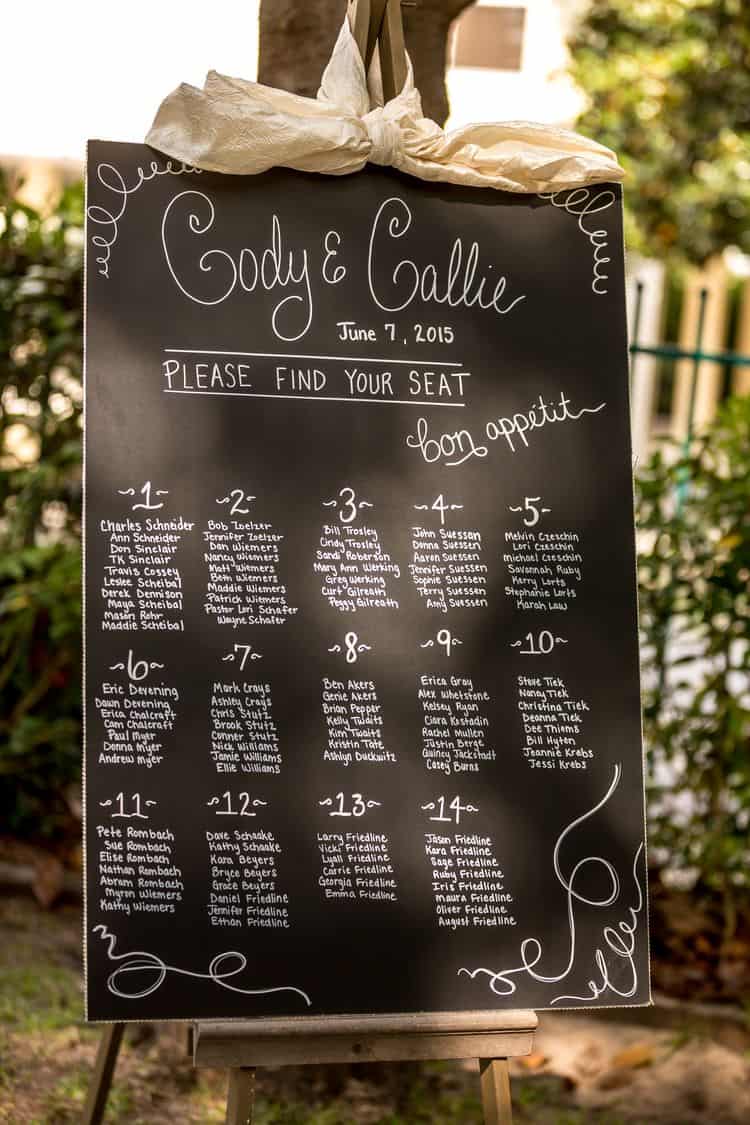 Cody & Callie
June 7, 2015
PLEASE FIND YOUR SEAT
bon appétit
1
Charles Schneider
Ann Schneider
Don Sinclair
TK Sinclair
Travis Cossey
Leslee Scheibal
Derek Dennison
Maya Scheibal
Mason Rohr
Maddie Scheibal
2
Bob Zoelzer
Jennifer Zoelzer
Dan Wiemers
Nancy Wiemers
Matt Wiemers
Beth Wiemers
Maddie Wiemers
Patrick Wiemers
Pastor Lori Schafer
Wayne Schafer
3
Bill Trosley
Cindy Trosley
Sandi Roberson
Mary Ann Werking
Greg Werking
Curt Gilreath
Peggy Gilreath
4
John Suessen
Donna Suessen
Aaron Suessen
Jennifer Suessen
Sophie Suessen
Terry Suessen
Amy Suessen
5
Melvin Czeschin
Lori Czeschin
Michael Czeschin
Savannah Ruby
Kerry Lorts
Stephanie Lorts
Karah Law
6
Eric Devening
Dawn Devening
Erica Chalcraft
Cam Chalcraft
Paul Myer
Donna Myer
Andrew Myer
7
Mark Crays
Ashley Crays
Chris Stutz
Brook Stutz
Conner Stutz
Nick Williams
Jamie Williams
Ellie Williams
8
Ben Akers
Genie Akers
Brian Pepper
Kelly Twaits
Kim Twaits
Kristin Tate
Ashlyn Duckwitz
9
Erica Gray
Alex Whetstone
Kelsey Ryan
Ciara Kostadin
Rachel Mullen
Justin Berge
Quincy Jackstadt
Casey Burns
10
Steve Tiek
Nancy Tiek
Christina Tiek
Deanna Tiek
Dee Thiems
Bill Hyten
Jeannie Krebs
Jessi Krebs
11
Pete Rombach
Sue Rombach
Elise Rombach
Nathan Rombach
Abram Rombach
Myron Wiemers
Kathy Wiemers
12
Dave Schaake
Kathy Schaake
Kara Beyers
Bryce Beyers
Grace Beyers
Daniel Friedline
Jennifer Friedline
Ethan Friedline
13
Larry Friedline
Vicki Friedline
Lyall Friedline
Carrie Friedline
Georgia Friedline
Emma Friedline
14
Jason Friedline
Kara Friedline
Sage Friedline
Ruby Friedline
Iris Friedline
Maura Friedline
Oliver Friedline
August Friedline